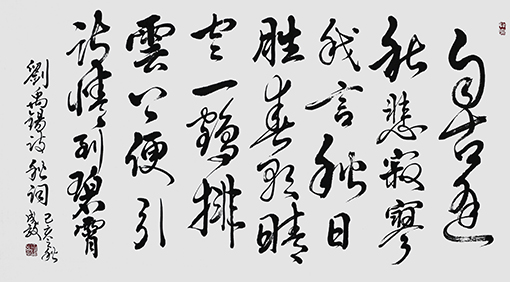 自古逢
秋悲寂寥
我言秋日
胜春朝晴
空一鶴排
雲上便引
詩情到碧霄
劉禹錫詩秋詞
己亥之秋